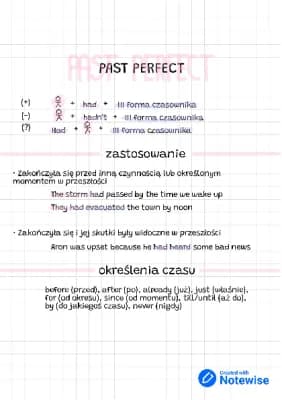 PAST PERFECT
PAST PERFECT
(+) + had + III forma czasownika
(-) + hadn't + III forma czasownika
(?) Had + + III forma czasownika
zastosowanie
• Zakończyła się przed inną czynnością lub określonym
momentem w przeszłości
The storm had passed by the time we wake up
They had evacuated the town by noon
• Zakończyła się i jej skutki były widoczne w przeszłości
Aron was upset because he had heard some bad news
określenia czasu
before (przed), after (po), already (już), just (właśnie),
for (od okresu), since (od momentu), till/until (aż do),
by (do jakiegoś czasu), never (nigdy)
Created with
Notewise